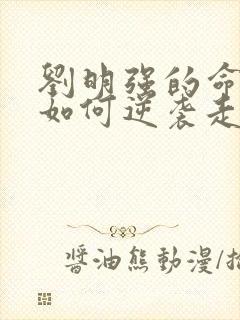 劉明强的命
如何逆袭走
醬油熊動漫/插